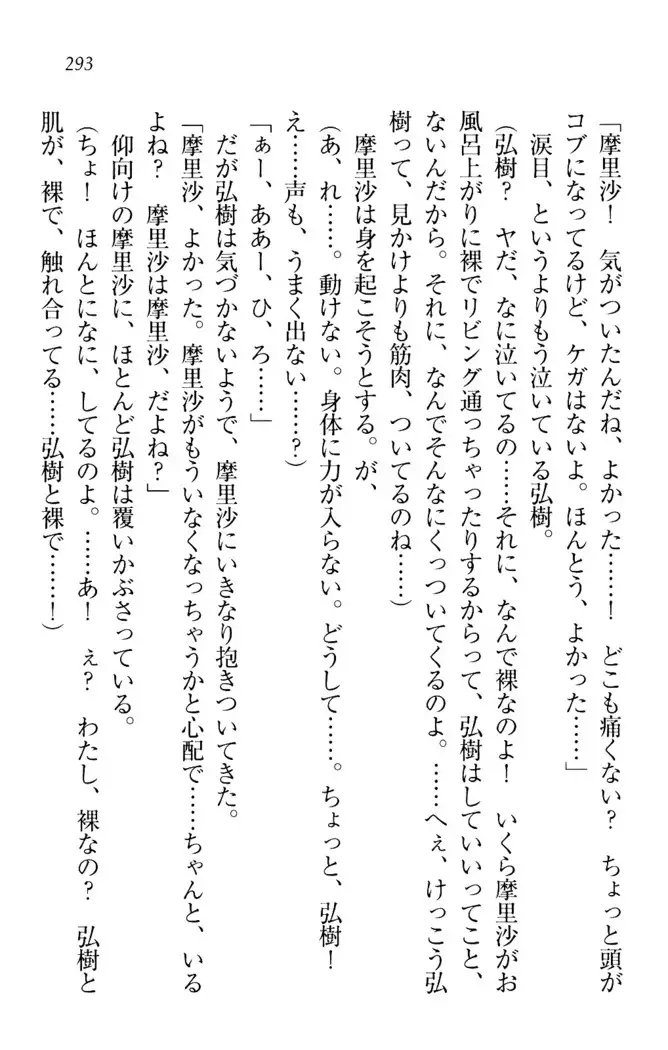 293
「摩里沙!　気がついたんだね、よかった……!　どこも痛くない?　ちょっと頭が
コブになってるけど、ケガはないよ。ほんとう、よかった……」
　涙目、というよりもう泣いている弘樹。
(弘樹?　ヤだ、なに泣いてるの……それに、なんで裸なのよ!　いくら摩里沙がお
風呂上がりに裸でリビング通っちゃったりするからって、弘樹はしていいってこと、
ないんだから。それに、なんでそんなにくっついてくるのよ。……へぇ、けっこう弘
樹って、見かけよりも筋肉、ついてるのね……)
　摩里沙は身を起こそうとする。が、
(あ、れ……。動けない。身体に力が入らない。どうして……。ちょっと、弘樹!
え……声も、うまく出ない……?)
「ぁー、ああー、ひ、ろ……」
　だが弘樹は気づかないようで、摩里沙にいきなり抱きついてきた。
「摩里沙、よかった。摩里沙がもういなくなっちゃうかと心配で……ちゃんと、いる
よね?　摩里沙は摩里沙、だよね?」
　仰向けの摩里沙に、ほとんど弘樹は覆いかぶさっている。
(ちょ!　ほんとになに、してるのよ。……あ!　ぇ?　わたし、裸なの?　弘樹と
肌が、裸で、触れ合ってる……弘樹と裸で……!)